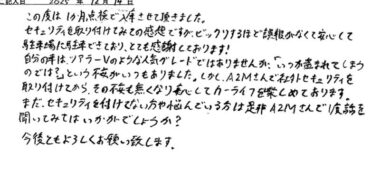 記入日 2025 年 12 月 14 日
この度は1か月点検で入庫させて頂きました。
セキュリティを取り付けてみての感想ですが、ビックリするほど誤報がなくて安心して
駐車場に駐車できており、とても感謝しております!
自分の車は、ソアラーVのような人気グレードではありませんが、「いつか盗まれてしまう
のでは?」という不安がいつもありました。しかし、A2Mさんで社外セキュリティを
取り付けてから、その不安も無くなり安心してカーライフを楽しめております。
まだ、セキュリティを付けてない方や悩んでいる方は是非A2Mさんで1度話を
聞いてみてはいかがでしょうか?
今後ともよろしくお願い致します。